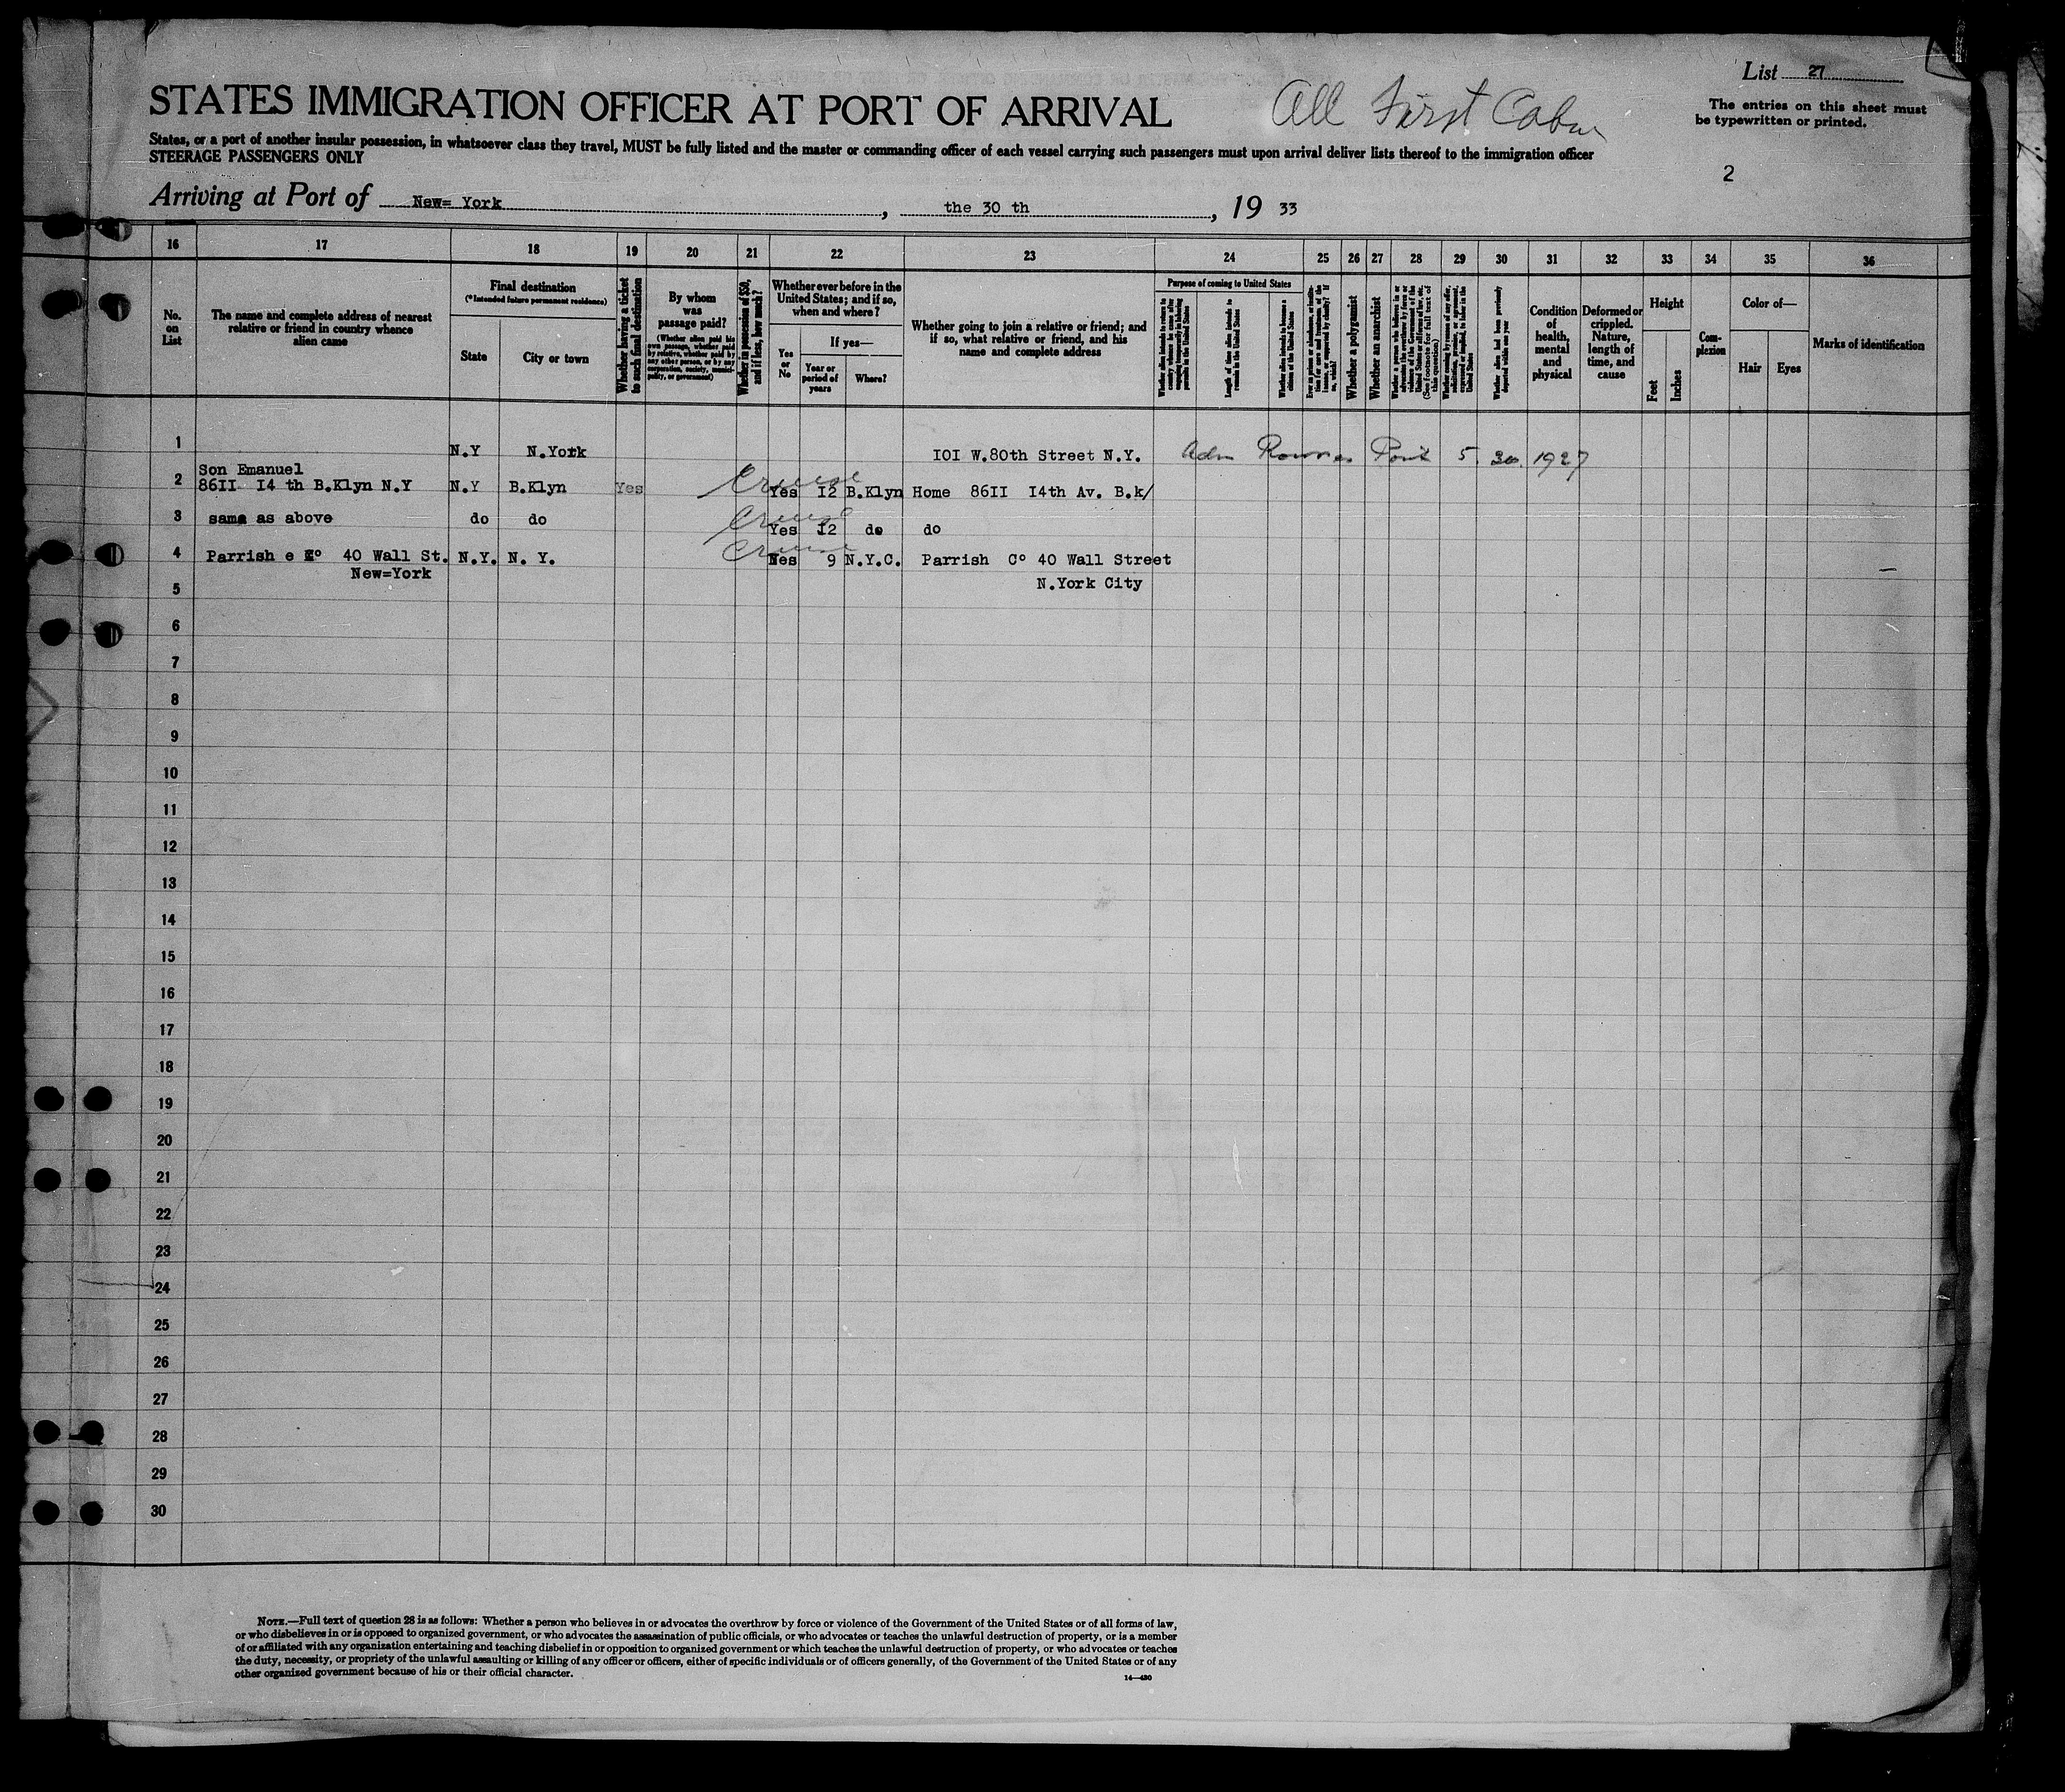 List 27
STATES IMMIGRATION OFFICER AT PORT OF ARRIVAL
All First Cabin
The entries on this sheet must
be typewritten or printed.
States, or a port of another insular possession, in whatsoever class they travel, MUST be fully listed and the master or commanding officer of each vessel carrying such passengers must upon arrival deliver lists thereof to the immigration officer
STEERAGE PASSENGERS ONLY
2
Arriving at Port of New= York, the 30 th, 19 33
16 17 18 19 20 21 22 23 24 25 26 27 28 29 30 31 32 33 34 35 36
No.
on
List
The name and complete address of nearest
relative or friend in country whence
alien came
Final destination
(*Intended future permanent residence)
State
City or town
Whether having a ticket
to such final destination
By whom
was
passage paid?
(Whether alien paid his
own passage, whether paid
by relative, whether paid by
any other person, or by any
corporation, society, munici-
pality, or government)
Whether in possession of $50,
and if less, how much?
Whether ever before in the
United States; and if so,
when and where?
Yes
or
No
If yes—
Year or
period of
years
Where?
Whether going to join a relative or friend; and
if so, what relative or friend, and his
name and complete address
Purpose of coming to United States
Whether alien intends to return to
country whence he came after
engaging temporarily in laboring
pursuits in the United States
Length of time alien intends to
remain in the United States
Whether alien intends to become a
citizen of the United States
Whether a polygamist
Whether an anarchist
Whether a person who believes in or
advocates the overthrow by force or
violence of the Government of the
United States or all forms of law, etc.
(See footnote for full text of
this question)
Whether coming by reason of any offer,
solicitation, promise, or agreement,
expressed or implied, to labor in the
United States
Whether alien had been previously
deported within one year
Condition
of
health,
mental
and
physical
Deformed or
crippled.
Nature,
length of
time, and
cause
Height
Feet
Inches
Com-
plexion
Color of—
Hair
Eyes
Marks of identification
1 N.Y N.York IOI W.80th Street N.Y. 5. 30. 1927
Son Emanuel
2 86II I4 th B.Klyn N.Y N.Y B.Klyn Yes Cruise Yes I2 B.Klyn Home 86II I4th Av. B.k/
3 same as above do do Cruise Yes I2 do do
4 Parrish e Co 40 Wall St. N.Y. N. Y. Cruise Yes 9 N.Y.C. Parrish Co 40 Wall Street
New=York
5 N.York City
6
7
8
9
10
11
12
13
14
15
16
17
18
19
20
21
22
23
24
25
26
27
28
29
30
NOTE.—Full text of question 28 is as follows: Whether a person who believes in or advocates the overthrow by force or violence of the Government of the United States or of all forms of law,
or who disbelieves in or is opposed to organized government, or who advocates the assassination of public officials, or who advocates or teaches the unlawful destruction of property, or is a member
of or affiliated with any organization entertaining and teaching disbelief in or opposition to organized government or which teaches the unlawful destruction of property, or who advocates or teaches
the duty, necessity, or propriety of the unlawful assaulting or killing of any officer or officers, either of specific individuals or of officers generally, of the Government of the United States or of any
other organized government because of his or their official character.
14—430